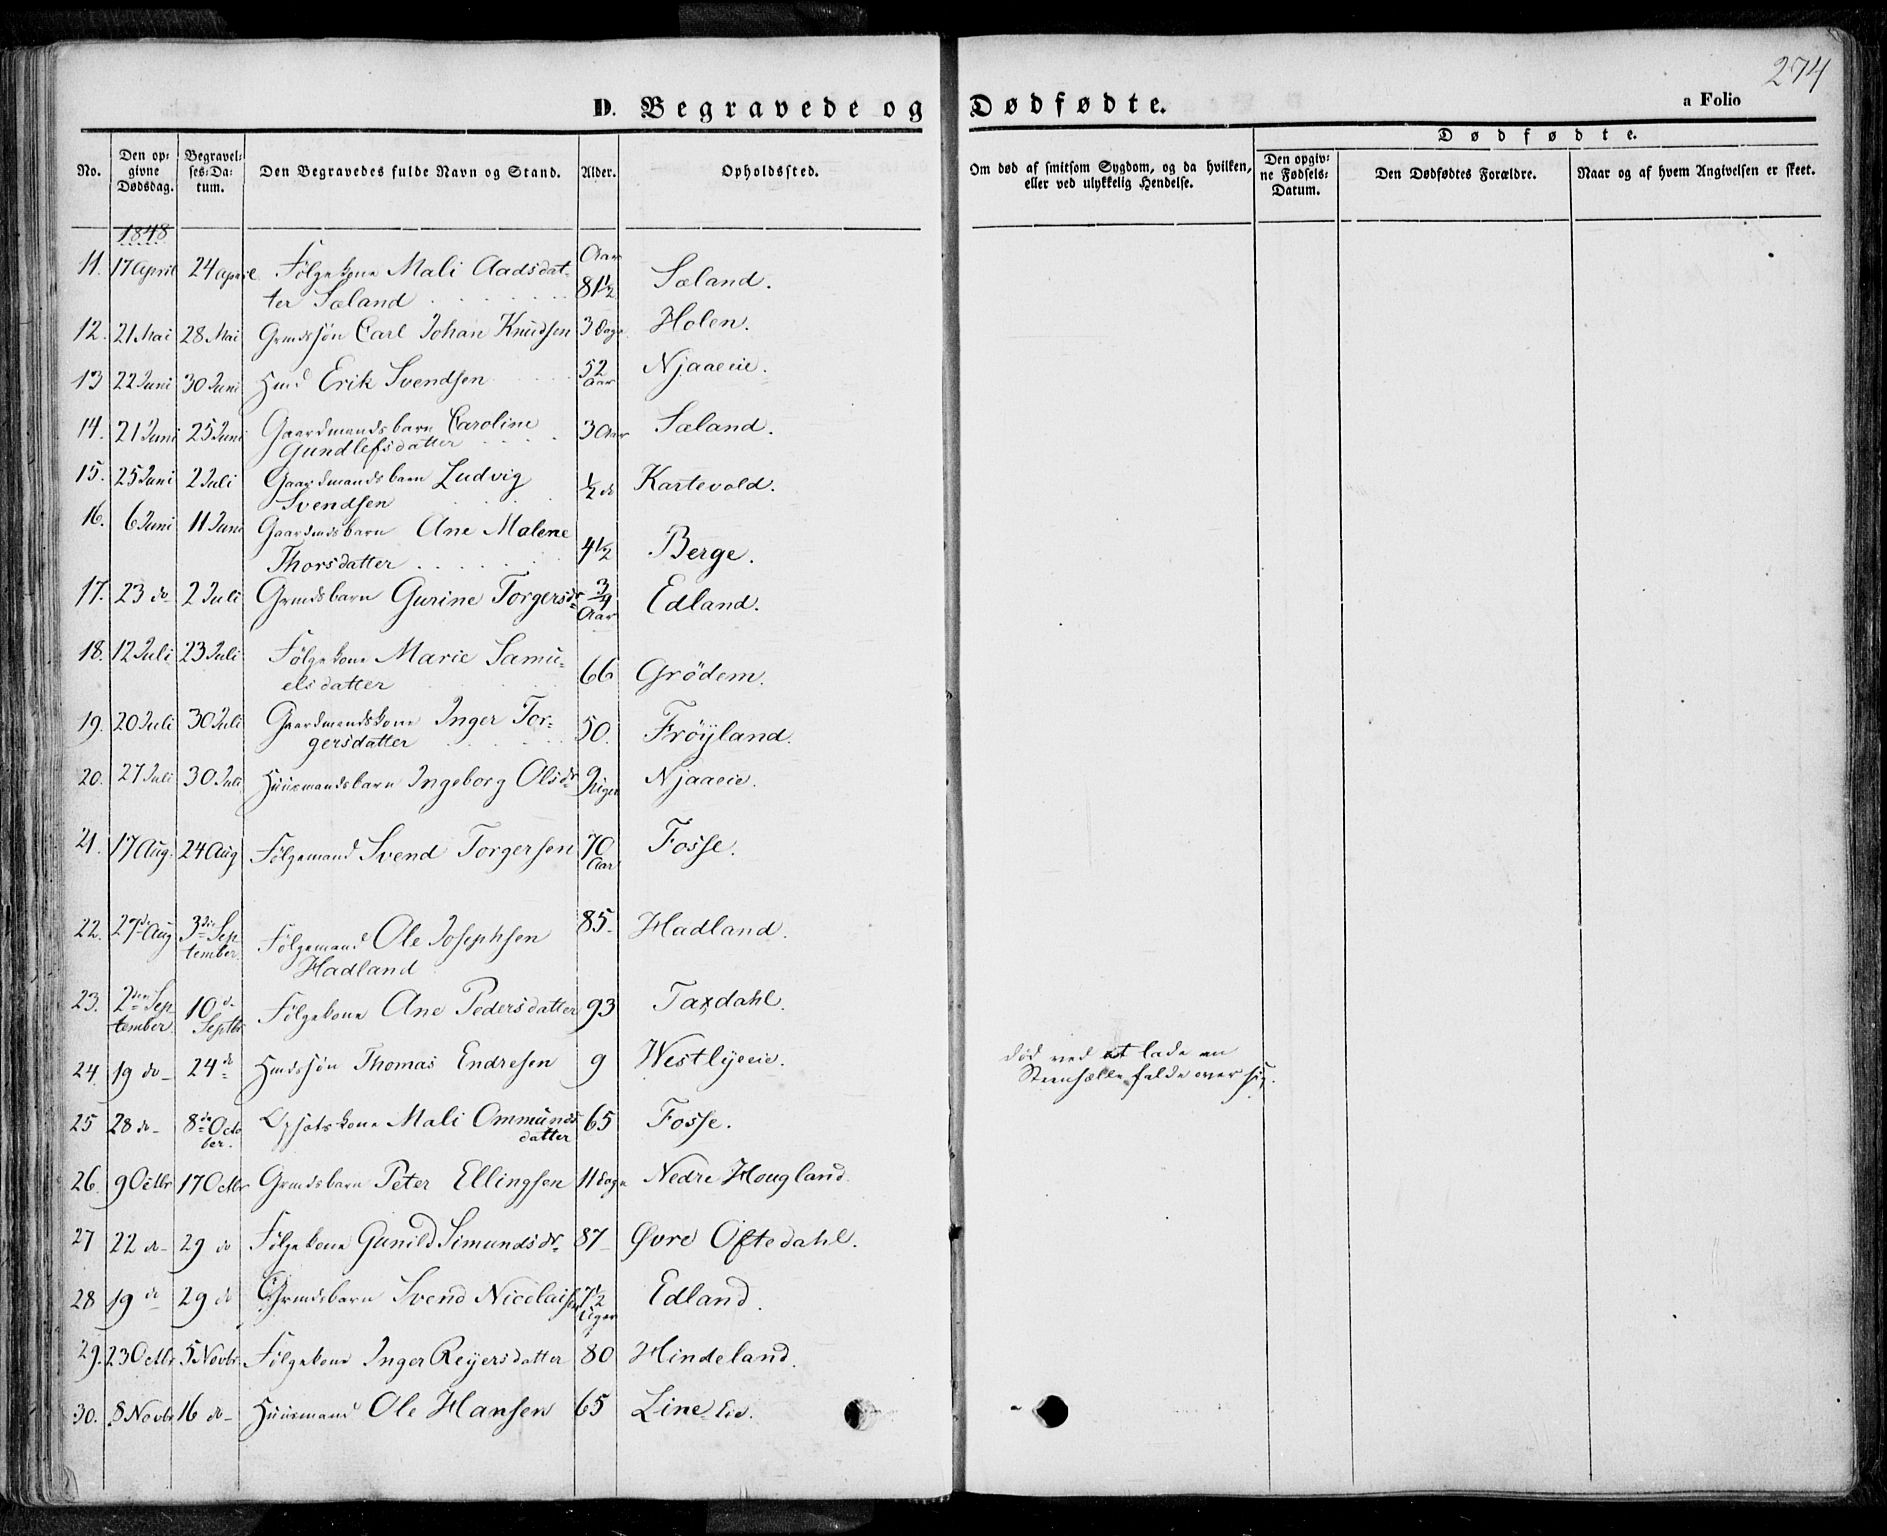 274
D. Begravede og Dødfødte.
a Folio
No.
Den opgivne Dødsdag.
Begravelses-Datum.
Den Begravedes fulde Navn og Stand.
Alder.
Opholdssted.
Om død af smitsom Sygdom, og da hvilken, eller ved ulykkelig Hendelse.
Dødfødte.
Den opgivne Fødsels-Datum.
Den Dødfødtes Forældre.
Naar og af hvem Angivelsen er skeet.
1848
11. 17 April 24 April Følgekone Mali Aadsdatter Sæland Aar 81½ Sæland.
12. 21 Mai 28 Mai Grmdssøn Carl Johan Knudsen 3 Dage Holen.
13 22 Juni 30 Juni Hmd Erik Svendsen 52 Aar Njaaeie.
14. 21 Juni 25 Juni Gaardmandsbarn Caroline Gundlefsdatter 3 Aar Sæland.
15. 25 Juni 2 Juli Gaardmandsbarn Ludvig Svendsen ½ do Kartevold.
16. 6 Juni 11 Juni Gaardmdsbarn Ane Malene Thorsdatter 4½ Berge.
17. 23 do 2 Juli Grmdsbarn Gurine Torgersdr ¾ Aar Edland.
18. 12 Juli 23 Juli Følgekone Marie Samuelsdatter 66 Grödem.
19. 20 Juli 30 Juli Gaardmandskone Inger Torgersdatter 50. Fröyland.
20. 27 Juli 30 Juli Huusmandsbarn Ingeborg Olsdr 2 Uger Njaaeie.
21. 17 Aug. 24 Aug Følgemand Svend Torgersen 70 Aar Fosse.
22. 27de Aug 3die September Følgemand Ole Josephsen Hadland 85 Hadland.
23. 2den September 10de Septbr Følgekone Ane Pedersdatter 93 Taxdahl.
24 19 do 24de Hmdssøn Thomas Endresen 9 Westlyeeie. død ved at lade en
Steenhælle falde over sig.
25 28 do 8de October. Opsatskone Mali Ommundsdatter 65 Fosse.
26. 9 Octbr 17 Octbr Grmdsbarn Peter Ellingsen 11 Dage Nedre Hougland.
27 22 do 29 do Følgekone Gunild Simundsdr 87 Øvre Oftedahl.
28 19 do 29 do Grmdsbarn Svend Nicolaisen 7½ Uger Edland.
29. 23 Octbr 5 Novbr. Følgekone Inger Reyersdatter 80 Hindeland.
30. 8 Novbr 16 do Huusmand Ole Hansen 65 Line Eie.